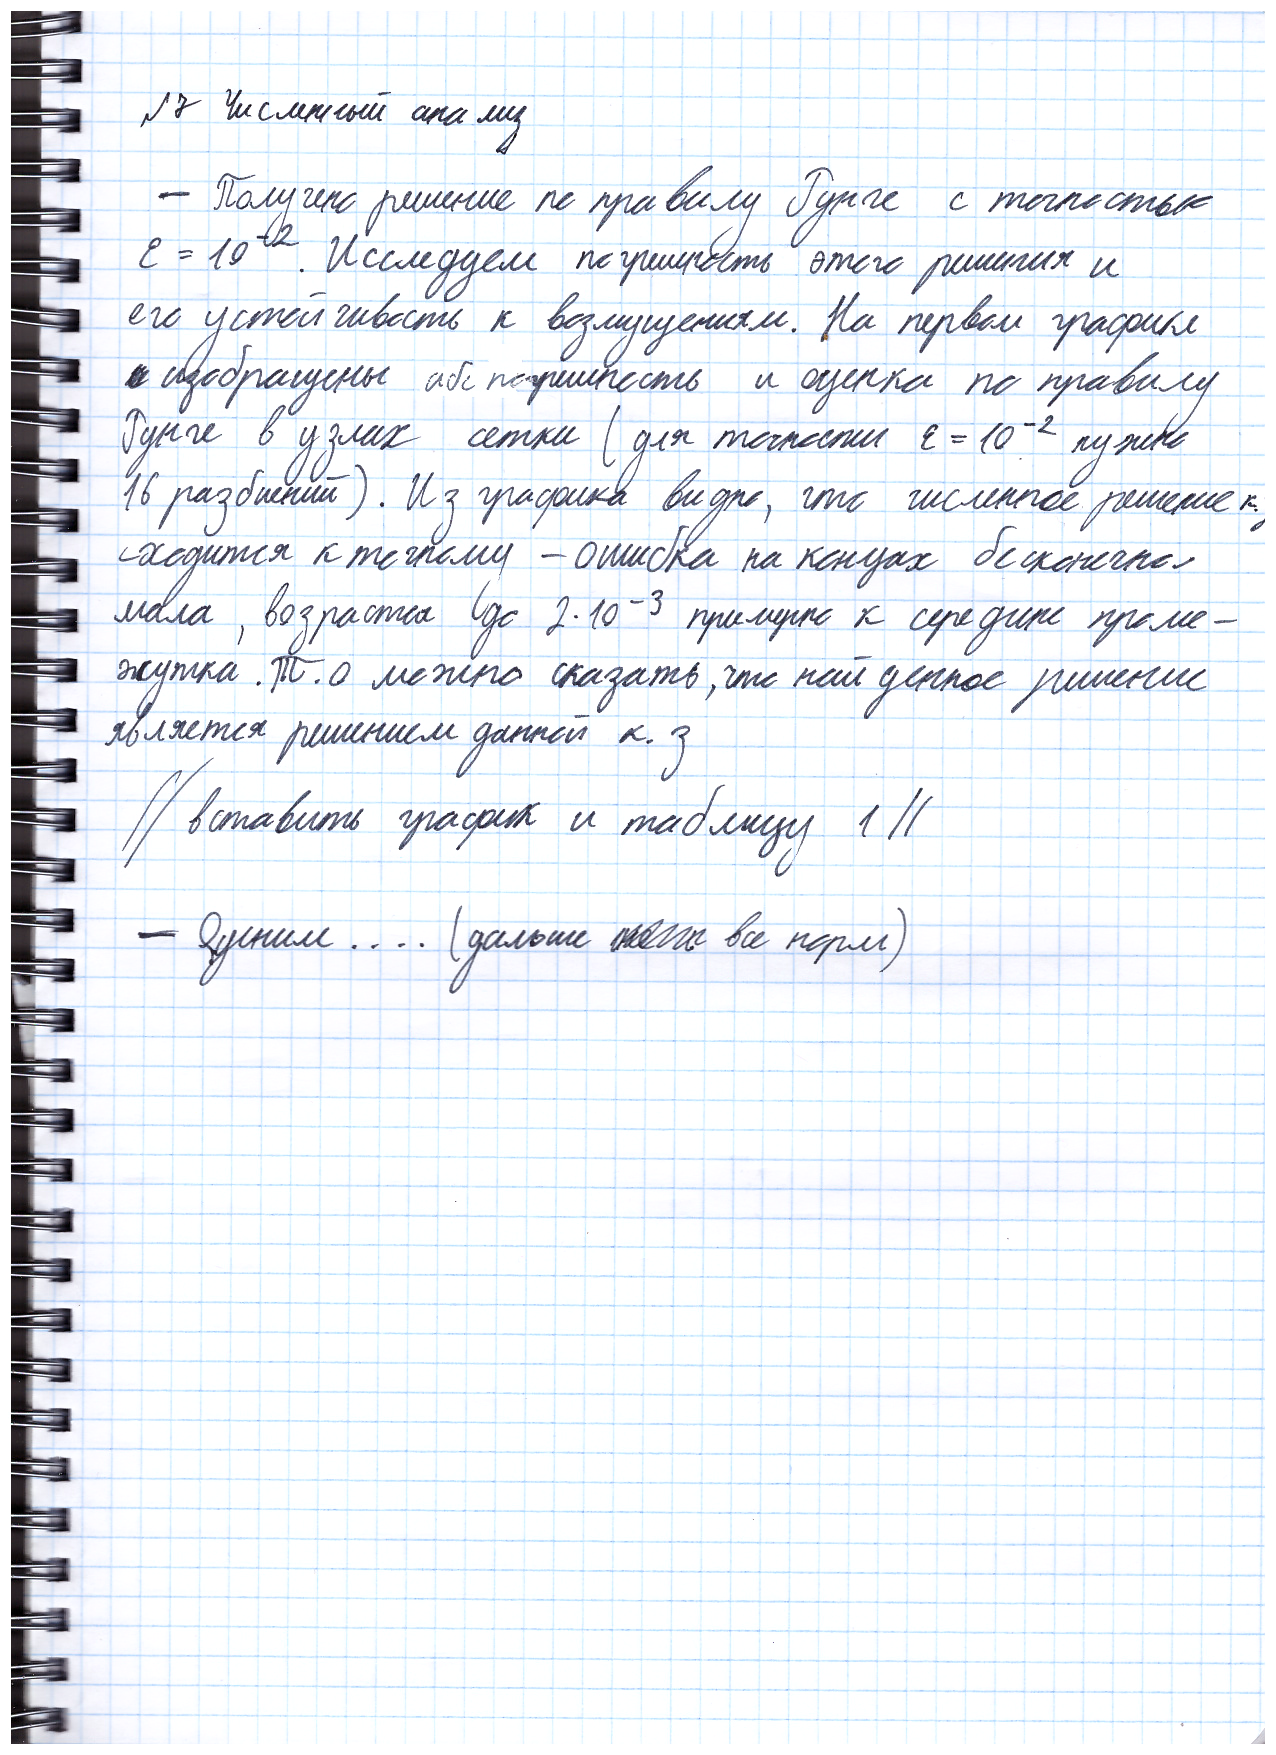 №7 Численный анализ
— Получено решение по правилу Рунге с точностью
ε = 10⁻². Исследуем погрешность этого решения и
его устойчивость к возмущениям. На первом графике
изображены абс погрешность и оценка по правилу
Рунге в узлах сетки (для точности ε = 10⁻² нужно
16 разбиений). Из графика видно, что численное решение к.з
сходится к точному — ошибка на концах бесконечно
мала, возрастая (до 2·10⁻³ примерно к середине проме-
жутка. Т.о можно сказать, что найденное решение
является решением данной к.з
// вставить график и таблицу 1 //
— Оценим .... (дальше все норм)